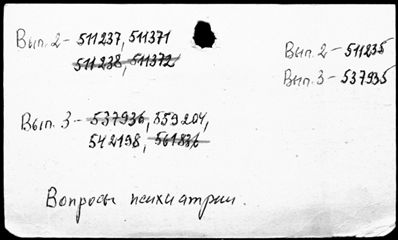 Вып. 2 - 511237, 511371
511238, 511372
Вып. 2 - 511235
Вып. 3 - 537935
Вып. 3 - 537936, 559204,
542198, 561836
Вопросы психиатрии.